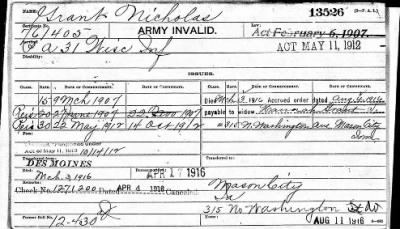 NAME: Grant Nicholas 13526 (S.F.A.L.)
761405 ARMY INVALID. Act February 6, 1907.
Co a 31 Wisc Inf ACT MAY 11, 1912
Disability
ISSUES.
CLASS. RATE. DATE OF COMMENCEMENT. DATE OF
15 9 Mch 1907 Died Mch 3, 1916 Accrued order dated
27 June 1907 1907 payable to widow Hannah Grant
Reis 30 22 May 1912 14 Oct 1912 315 N. Washington Ave. Mason City
Iowa
Act of May 11, 1912 10/14/12
DES MOINES
Mch. 3, 1916 APR 17 1916
Check No. 1271200 Dated APR 4 1916 Canceled Mason City
Ia
315 No Washington
Former Roll No. 12-430 AUG 11 1916